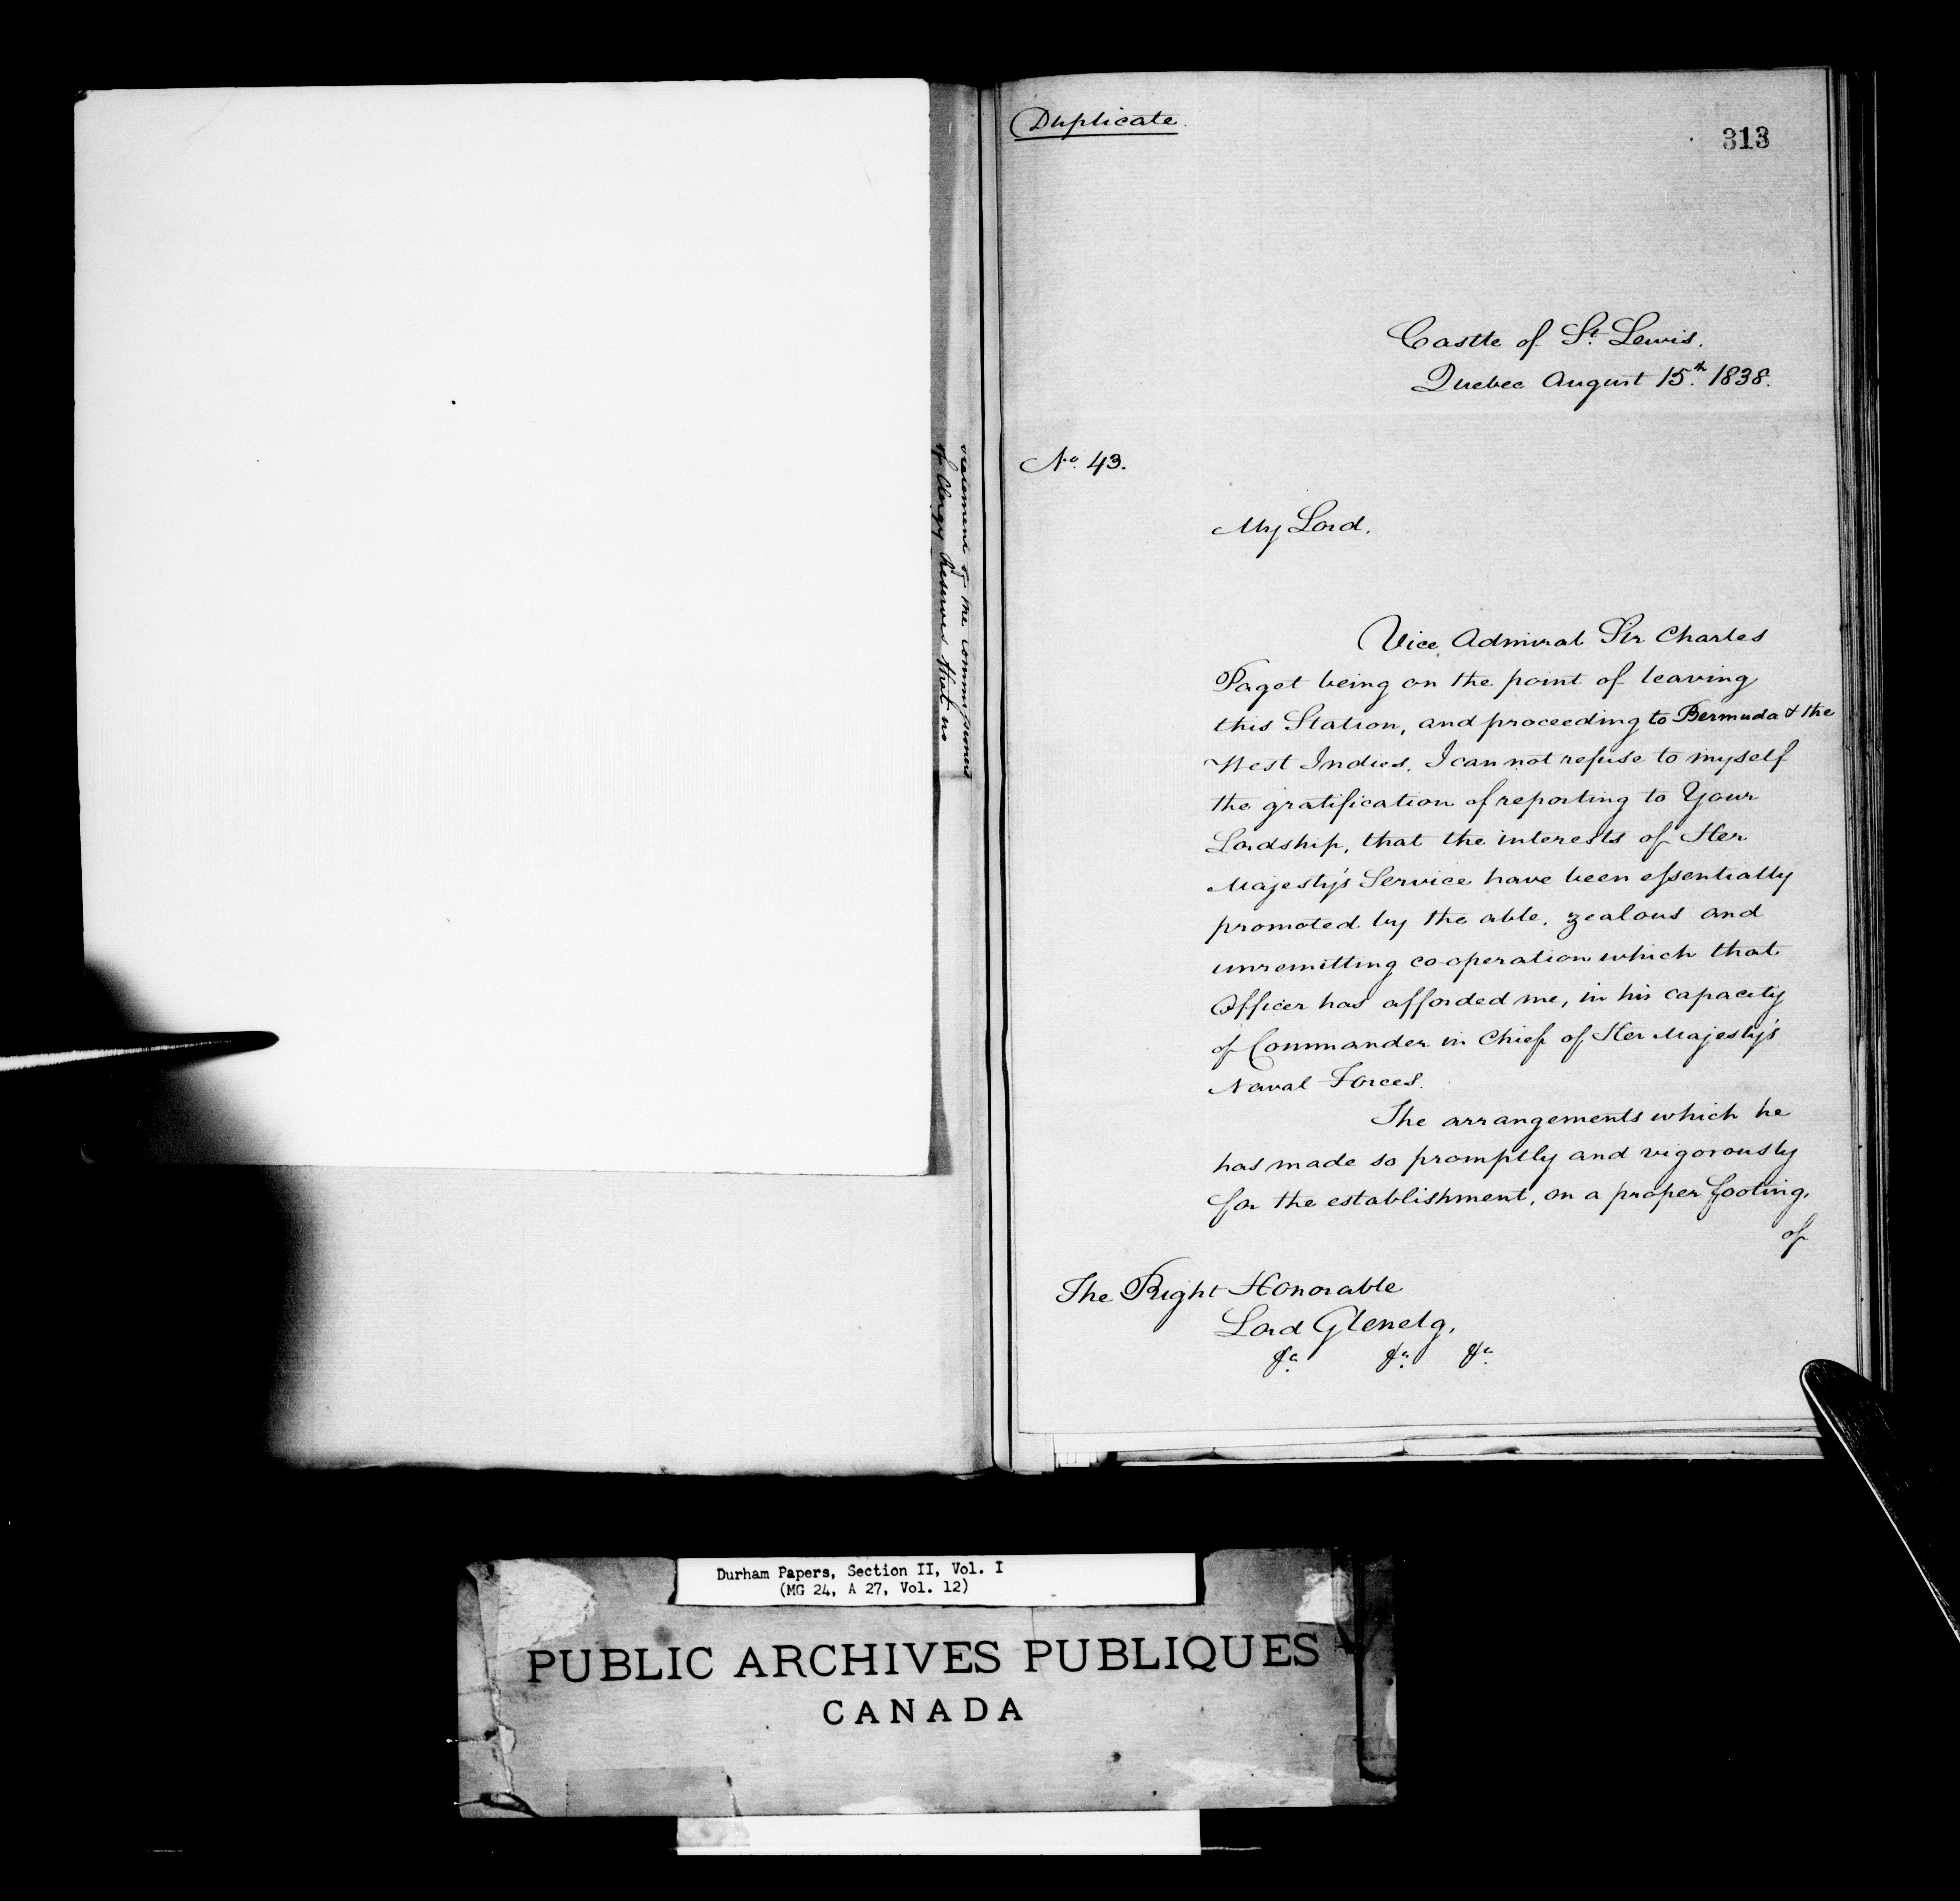 of the Commissioners
of Clergy Reserves that no
Duplicate.
313
Castle of St. Lewis.
Quebec August 15th. 1838.
No. 43.
My Lord.
Vice Admiral Sir Charles
Paget being on the point of leaving
this Station, and proceeding to Bermuda & the
West Indies. I can not refuse to myself
the gratification of reporting to Your
Lordship, that the interests of Her
Majesty's Service have been essentially
promoted by the able, zealous and
unremitting co-operation which that
Officer has afforded me, in his capacity
of Commander in Chief of Her Majesty's
Naval Forces.
The arrangements which he
has made so promptly and vigorously
for the establishment, on a proper footing,
of
The Right Honorable
Lord Glenelg,
&c. &c. &c.
Durham Papers, Section II, Vol. I
(MG 24, A 27, Vol. 12)
PUBLIC ARCHIVES PUBLIQUES
CANADA